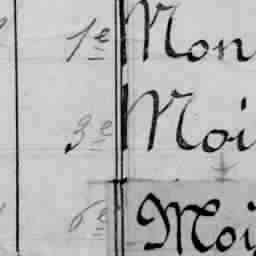 1e Mon
3e Moi
6e Moi